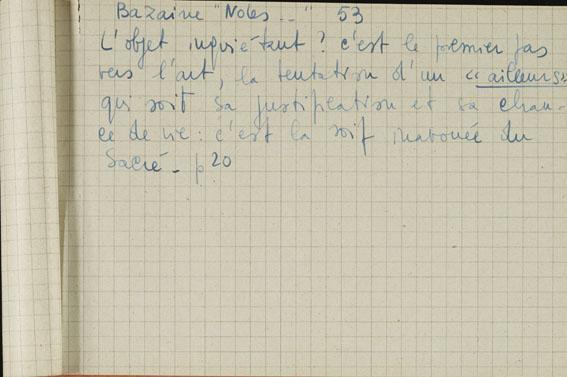 Bazaine "Notes..." 53
L'objet inquiétant ? c'est le premier pas
vers l'art, la tentation d'un « ailleurs »
qui soit sa justification et sa chan-
ce de vie : c'est la soif inavouée du
Sacré - p 20